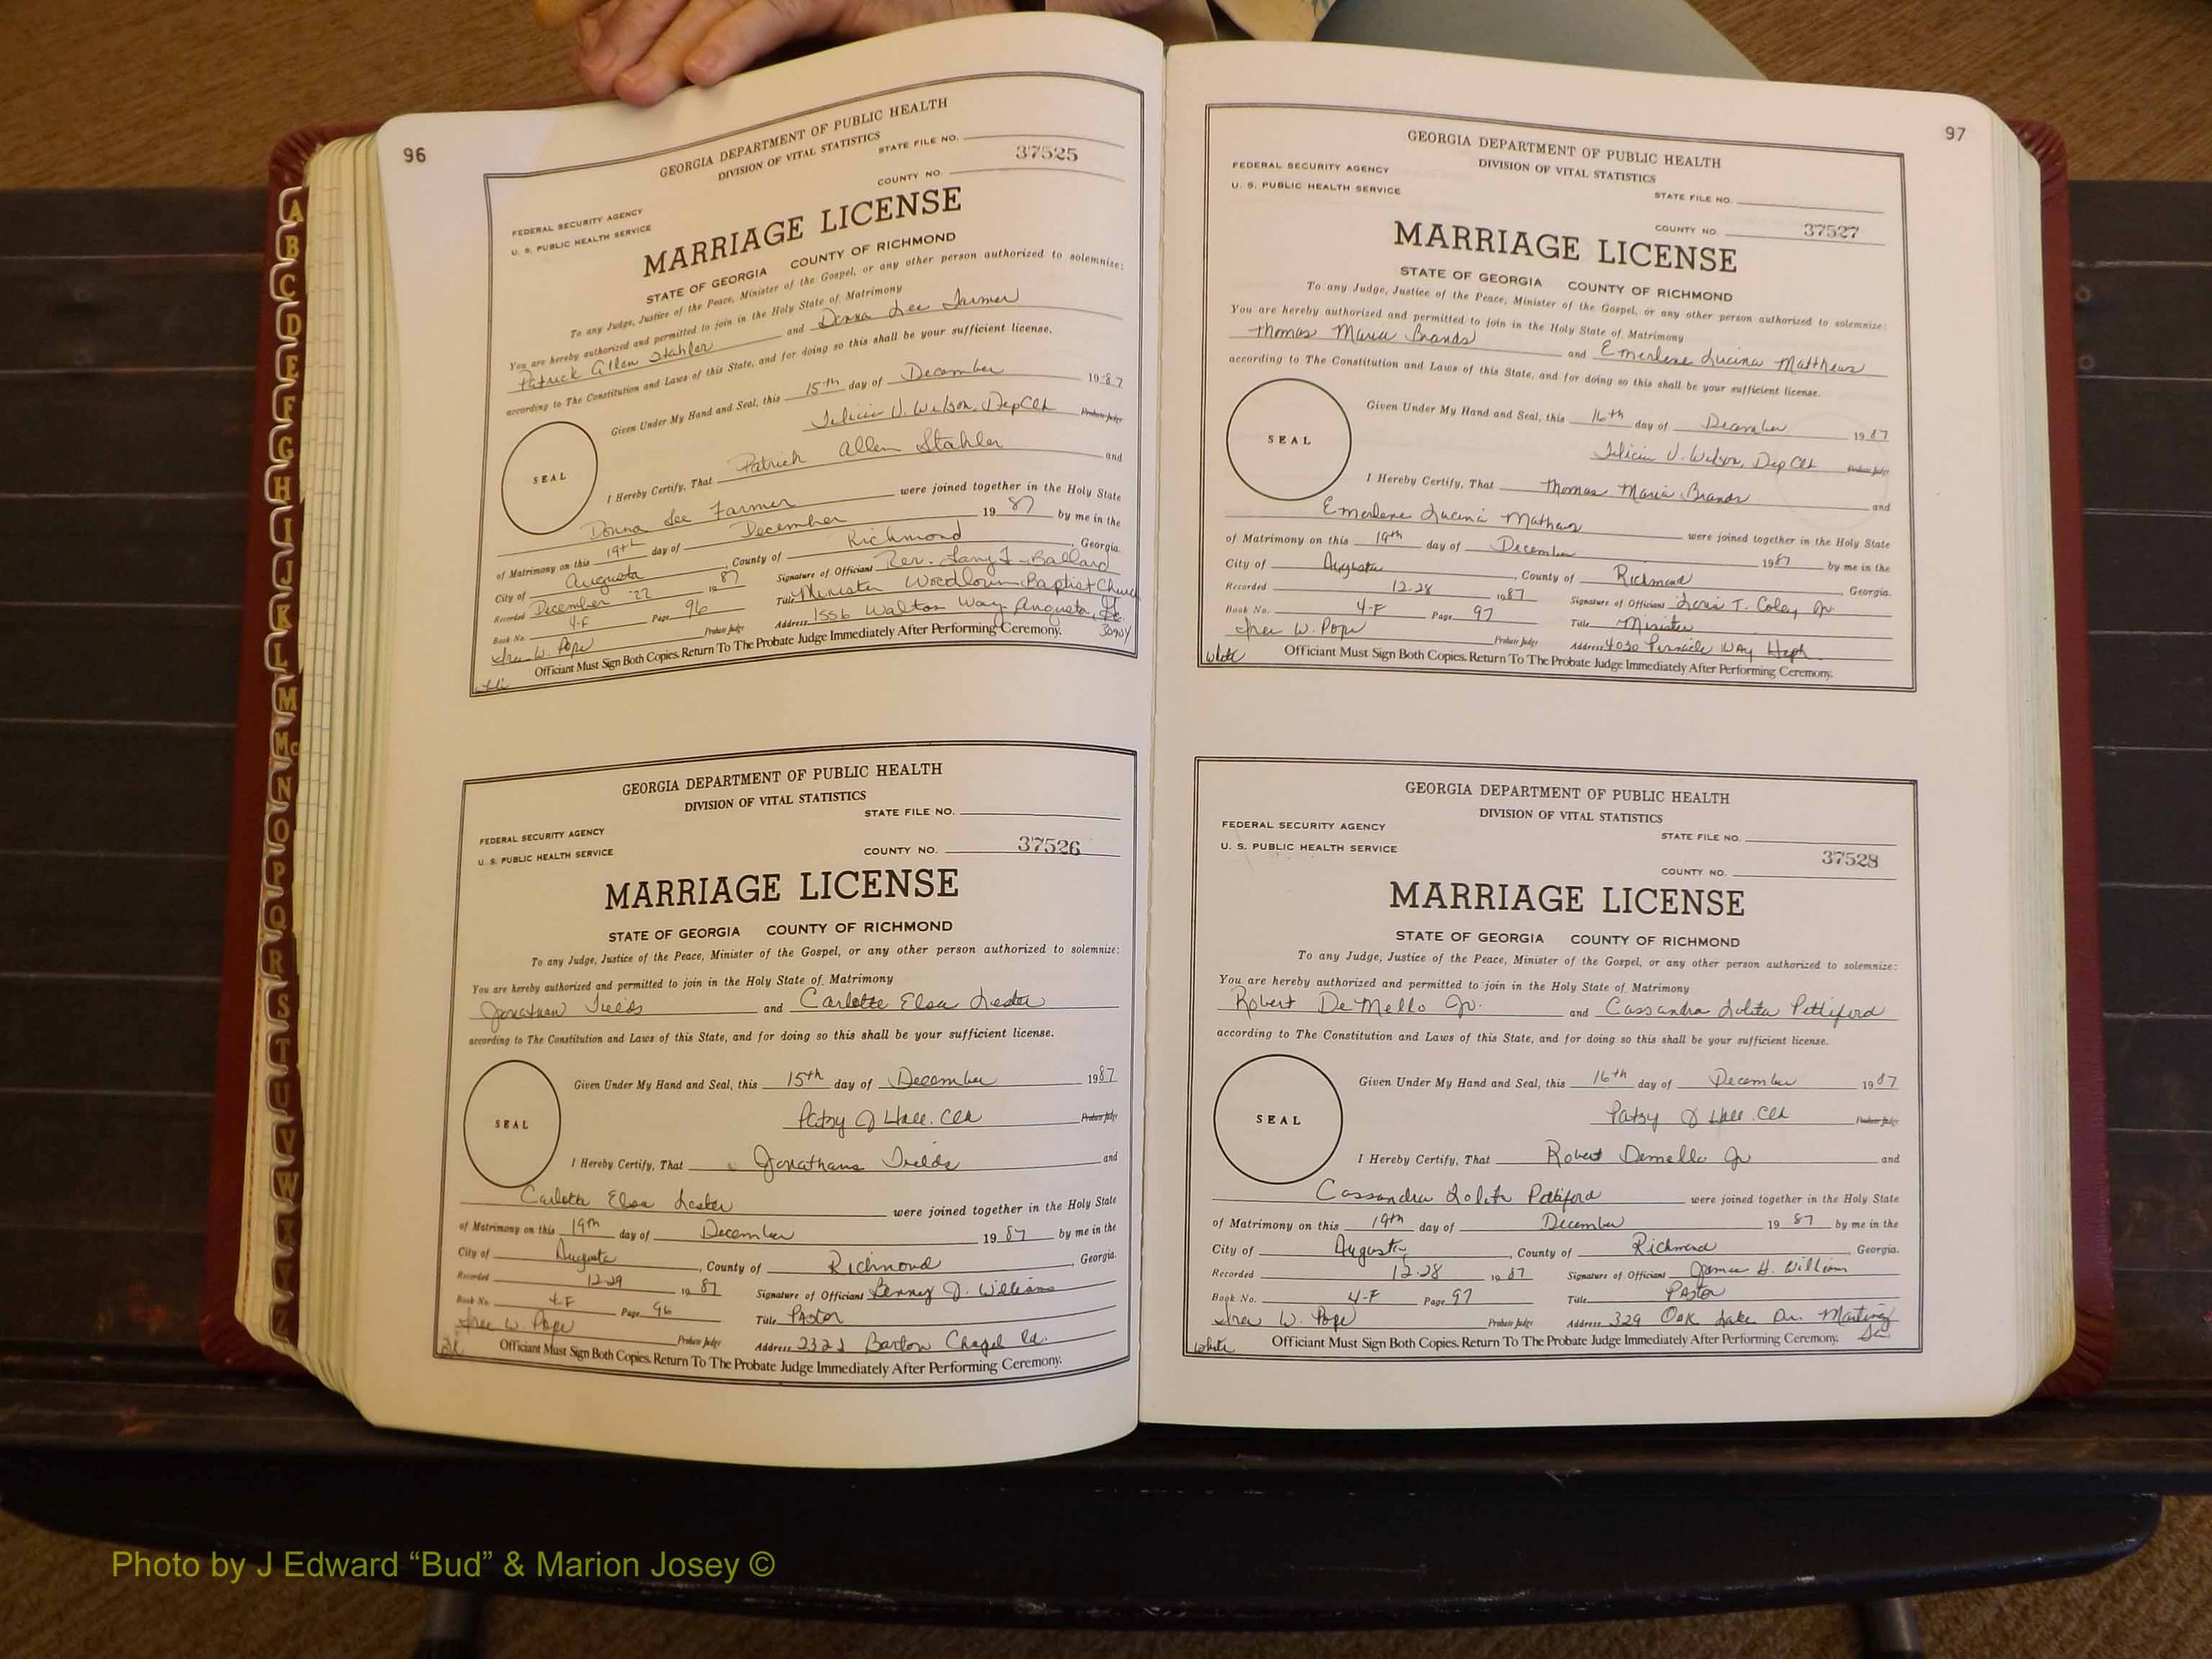 96
GEORGIA DEPARTMENT OF PUBLIC HEALTH
DIVISION OF VITAL STATISTICS
STATE FILE NO.
37525
COUNTY NO.
FEDERAL SECURITY AGENCY
U. S. PUBLIC HEALTH SERVICE
MARRIAGE LICENSE
STATE OF GEORGIA COUNTY OF RICHMOND
To any Judge, Justice of the Peace, Minister of the Gospel, or any other person authorized to solemnize:
You are hereby authorized and permitted to join in the Holy State of Matrimony
Patrick Allen Stahler and Donna Lee Farmer
according to The Constitution and Laws of this State, and for doing so this shall be your sufficient license.
Given Under My Hand and Seal, this 15th day of December 1987
Felicia V. Wilson, Dep Clk Probate Judge
SEAL
I Hereby Certify, That Patrick Allen Stahler and
Donna Lee Farmer were joined together in the Holy State
of Matrimony on this 19th day of December 19 87 by me in the
City of Augusta, County of Richmond, Georgia.
Recorded December 22 19 87 Signature of Officiant Rev. Ballard
Book No. 4-F Page 96 Title Minister Woodlawn Baptist Church
W. Pope Probate Judge Address 1556 Walton Way, Augusta, Ga. 30904
Officiant Must Sign Both Copies. Return To The Probate Judge Immediately After Performing Ceremony.
GEORGIA DEPARTMENT OF PUBLIC HEALTH
DIVISION OF VITAL STATISTICS
STATE FILE NO.
FEDERAL SECURITY AGENCY
U. S. PUBLIC HEALTH SERVICE
COUNTY NO. 37526
MARRIAGE LICENSE
STATE OF GEORGIA COUNTY OF RICHMOND
To any Judge, Justice of the Peace, Minister of the Gospel, or any other person authorized to solemnize:
You are hereby authorized and permitted to join in the Holy State of Matrimony
Jonathan Fields and Carlotte Elsa Lester
according to The Constitution and Laws of this State, and for doing so this shall be your sufficient license.
Given Under My Hand and Seal, this 15th day of December 1987
Patsy J Hall. Clk Probate Judge
SEAL
I Hereby Certify, That Jonathans Fields and
Carlotte Elsa Lester were joined together in the Holy State
of Matrimony on this 19th day of December 19 87 by me in the
City of Augusta, County of Richmond, Georgia.
Recorded 12-29 19 87 Signature of Officiant Benny J. Williams
Book No. 4-F Page 96 Title Pastor
W. Pope Probate Judge Address Barton Chapel Rd.
Officiant Must Sign Both Copies. Return To The Probate Judge Immediately After Performing Ceremony.
97
GEORGIA DEPARTMENT OF PUBLIC HEALTH
DIVISION OF VITAL STATISTICS
FEDERAL SECURITY AGENCY
U. S. PUBLIC HEALTH SERVICE
STATE FILE NO.
COUNTY NO. 37527
MARRIAGE LICENSE
STATE OF GEORGIA COUNTY OF RICHMOND
To any Judge, Justice of the Peace, Minister of the Gospel, or any other person authorized to solemnize:
You are hereby authorized and permitted to join in the Holy State of Matrimony
Thomas Maria Brands and Emerlene Lucina Matthews
according to The Constitution and Laws of this State, and for doing so this shall be your sufficient license.
Given Under My Hand and Seal, this 16th day of December 1987
Felicia V. Wilson, Dep Clk Probate Judge
SEAL
I Hereby Certify, That Thomas Maria Brands and
Emerlene Lucina were joined together in the Holy State
of Matrimony on this 19th day of December 1987 by me in the
City of Augusta, County of Richmond, Georgia.
Recorded 12-28 1987 Signature of Officiant T. Coley Jr.
Book No. 4-F Page 97 Title Minister
W. Pope Probate Judge Address 4030 Pinnacle Way Heph
White
Officiant Must Sign Both Copies. Return To The Probate Judge Immediately After Performing Ceremony.
GEORGIA DEPARTMENT OF PUBLIC HEALTH
DIVISION OF VITAL STATISTICS
FEDERAL SECURITY AGENCY
U. S. PUBLIC HEALTH SERVICE
STATE FILE NO.
37528
COUNTY NO.
MARRIAGE LICENSE
STATE OF GEORGIA COUNTY OF RICHMOND
To any Judge, Justice of the Peace, Minister of the Gospel, or any other person authorized to solemnize:
You are hereby authorized and permitted to join in the Holy State of Matrimony
Robert DeMello Jr. and Cassandra Lolita Pettiford
according to The Constitution and Laws of this State, and for doing so this shall be your sufficient license.
Given Under My Hand and Seal, this 16th day of December 1987
Patsy J Hall. Clk Probate Judge
SEAL
I Hereby Certify, That Robert Demello Jr and
Cassandra Lolita Pettiford were joined together in the Holy State
of Matrimony on this 19th day of December 19 87 by me in the
City of Augusta, County of Richmond, Georgia.
Recorded 12-28 19 87 Signature of Officiant James H. William
Book No. 4-F Page 97 Title Pastor
W. Pope Probate Judge Address 329 Oak Lake Dr. Martinez Ga
White
Officiant Must Sign Both Copies. Return To The Probate Judge Immediately After Performing Ceremony.
A
B
C
D
E
F
G
H
I
J
K
L
M
Mc
N
O
P
Q
R
S
T
U
V
W
X
Y
Z
Photo by J Edward “Bud” & Marion Josey ©